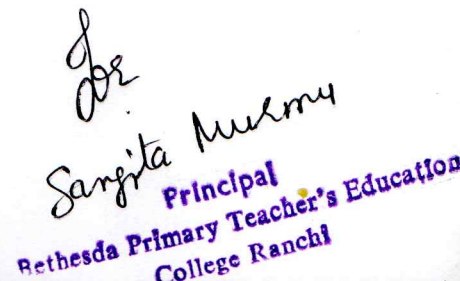 For
Sangita Murmu
Principal
Bethesda Primary Teacher's Education
College Ranchi